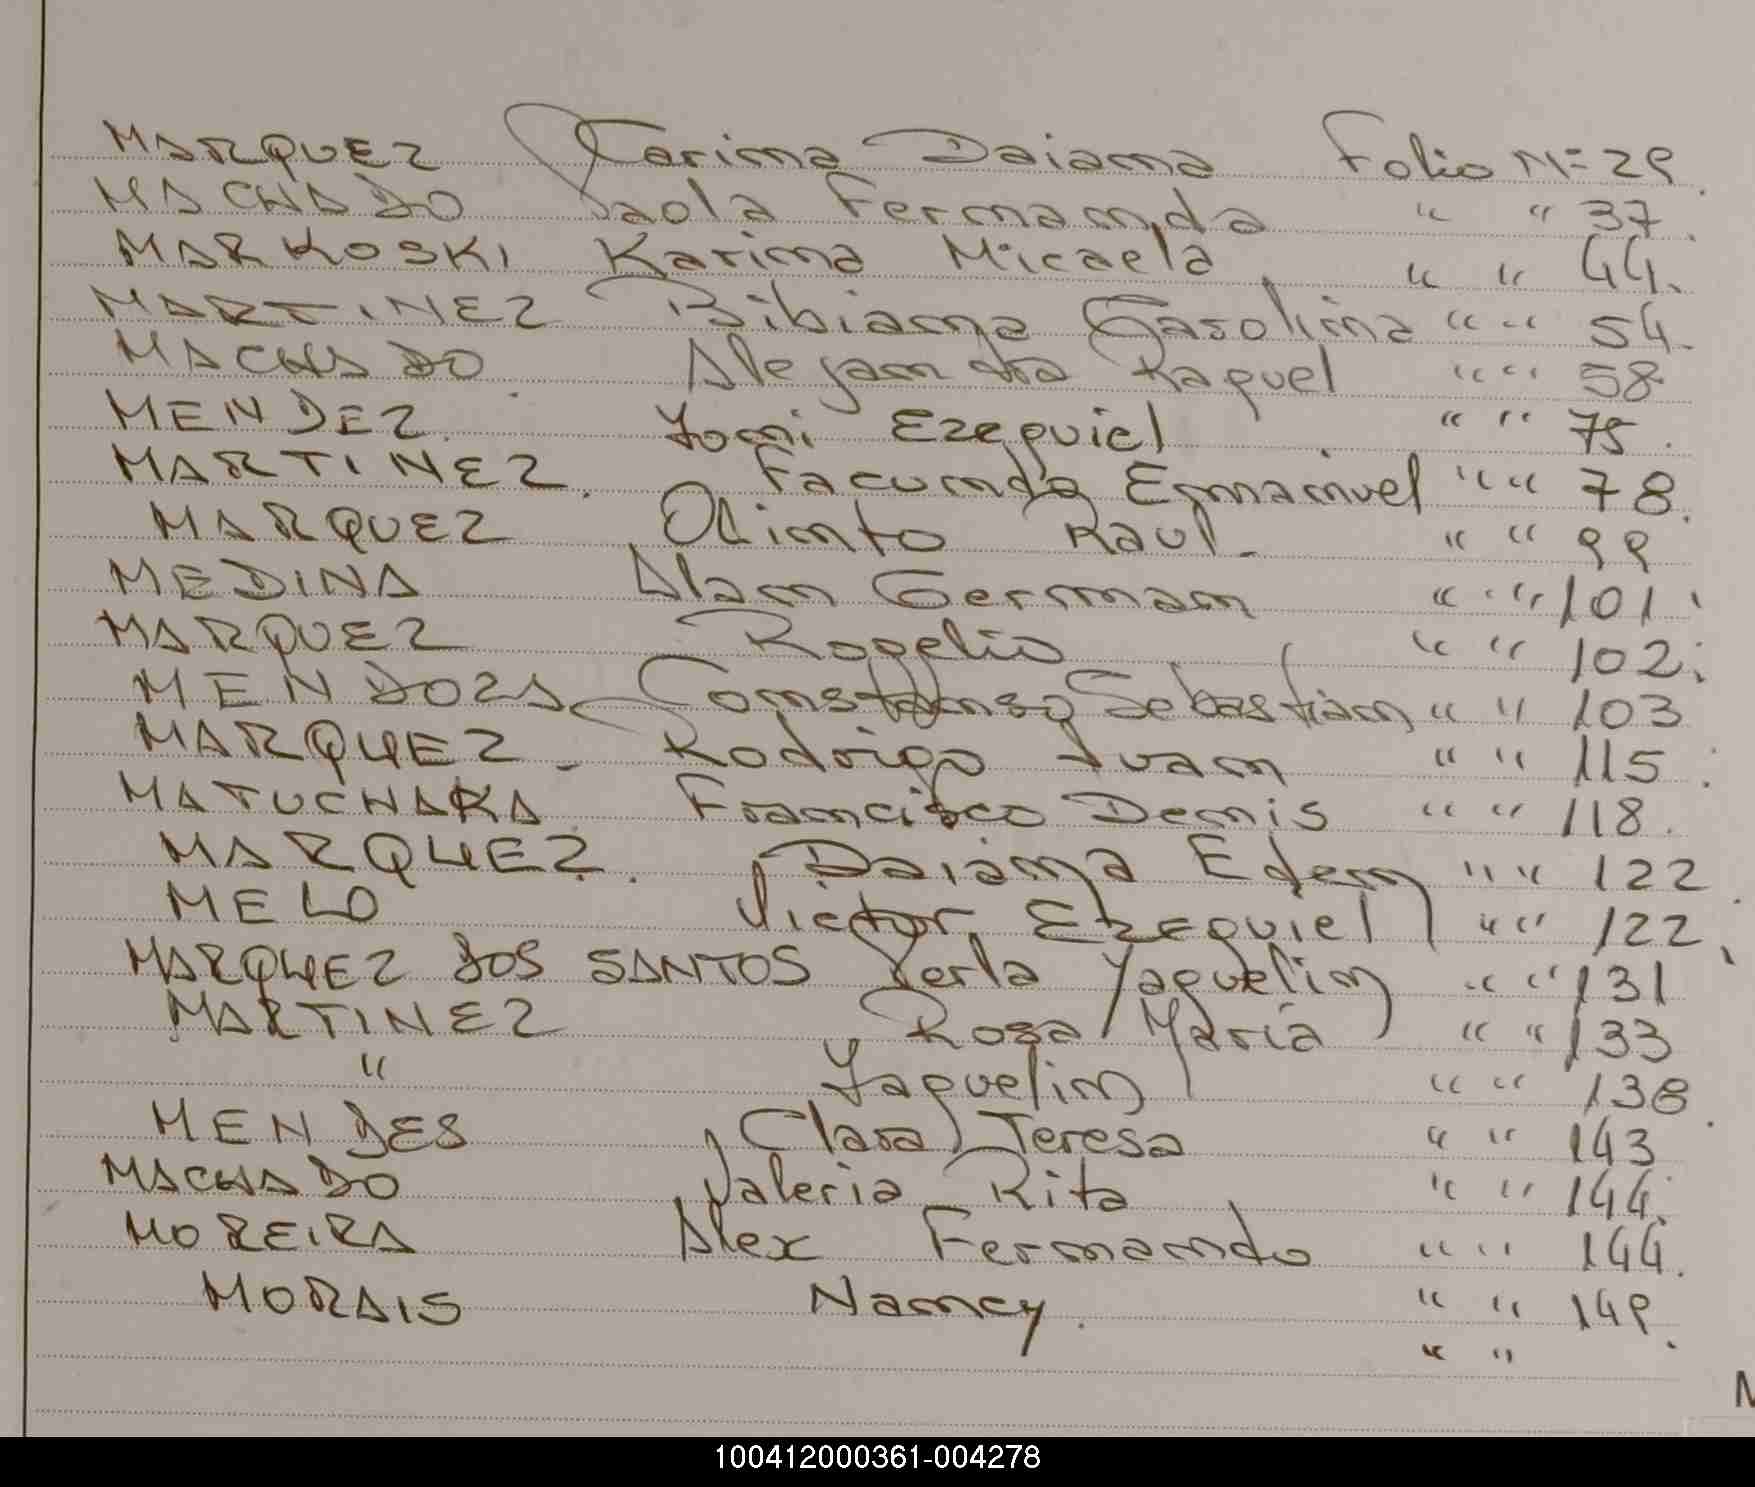 MARQUEZ Karina Daiana Folio Nº 29
MACHADO Paola Fernanda " " 37
MARKOSKI Karina Micaela " " 44.
MARTINEZ Bibiana Carolina " " 54
MACHADO Alejandra Raquel " " 58
MENDEZ. Yoni Ezequiel " " 75.
MARTINEZ. Facundo Emmanuel " " 78.
MARQUEZ Olinto Raul. " " 99
MEDINA Alan German " " 101
MARQUEZ Rogelio " " 102
MENDOZA Sebastian " " 103
MARQUEZ - Rodrigo Ivan " " 115
MATUCHAKA Francisco Denis " " 118.
MARQUEZ. Daiana Eden " " 122
MELO Victor Ezequiel " " 122
MARQUEZ DOS SANTOS Perla Yaquelin " " 131
MARTINEZ Rosa Maria " " 133
" Yaquelin " " 138
MENDES Clara Teresa " " 143
MACHADO Valeria Rita " " 144.
MOREIRA Alex Fernando " " 144.
MORAIS Nancy. " " 149.
" "
M
100412000361-004278